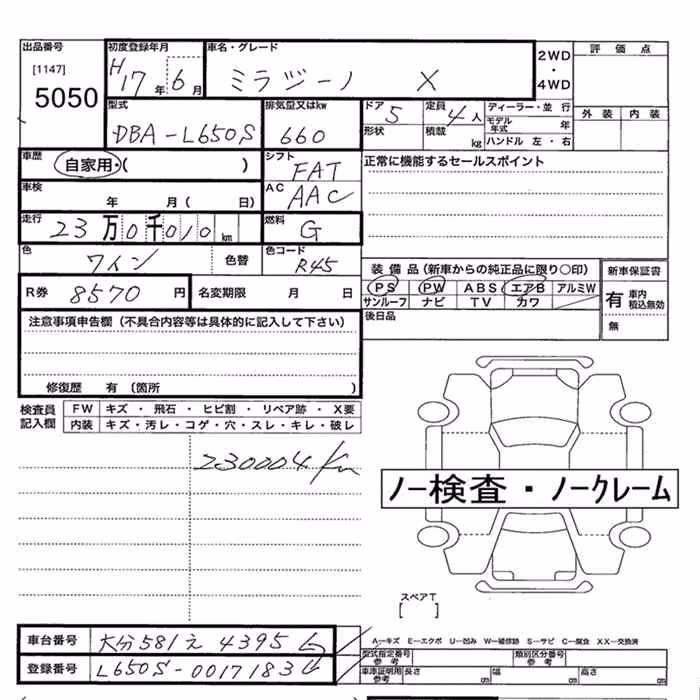 出品番号 初度登録年月 車名・グレード 2WD・4WD 評価点
[1147] 5050 H17年6月 ミラジーノ X
外装 内装
型式 排気量又はkw ドア 5 定員 4人 ディーラー・並行
DBA-L650S 660 形状 積載 kg モデル年式 年
ハンドル 左・右
車歴 自家用・( ) シフト FAT 正常に機能するセールスポイント
車検 年 月( 日) AC AAC
走行 23万0千010km 燃料 G
色 ワイン 色替 色コード R45
装備品(新車からの純正品に限り○印) 新車保証書
R券 8570円 名変期限 月 日 PS PW ABS エアB アルミW 有 車内 積込無効
サンルーフ ナビ TV カワ
注意事項申告欄(不具合内容等は具体的に記入して下さい) 後日品 無
修復歴 有(箇所 )
検査員記入欄 FW キズ・飛石・ヒビ割・リペア跡・X要
内装 キズ・汚レ・コゲ・穴・スレ・キレ・破レ
230004km
ノー検査・ノークレーム
スペアT
[ ]
車台番号 大分581え4395
A-キズ E-エクボ U-凹み W-補修跡 S-サビ C-腐食 XX-交換済
型式指定番号 参考 類別区分番号 参考
登録番号 L650S-0017183
車庫証明用 参考 長さ cm 幅 cm 高さ cm